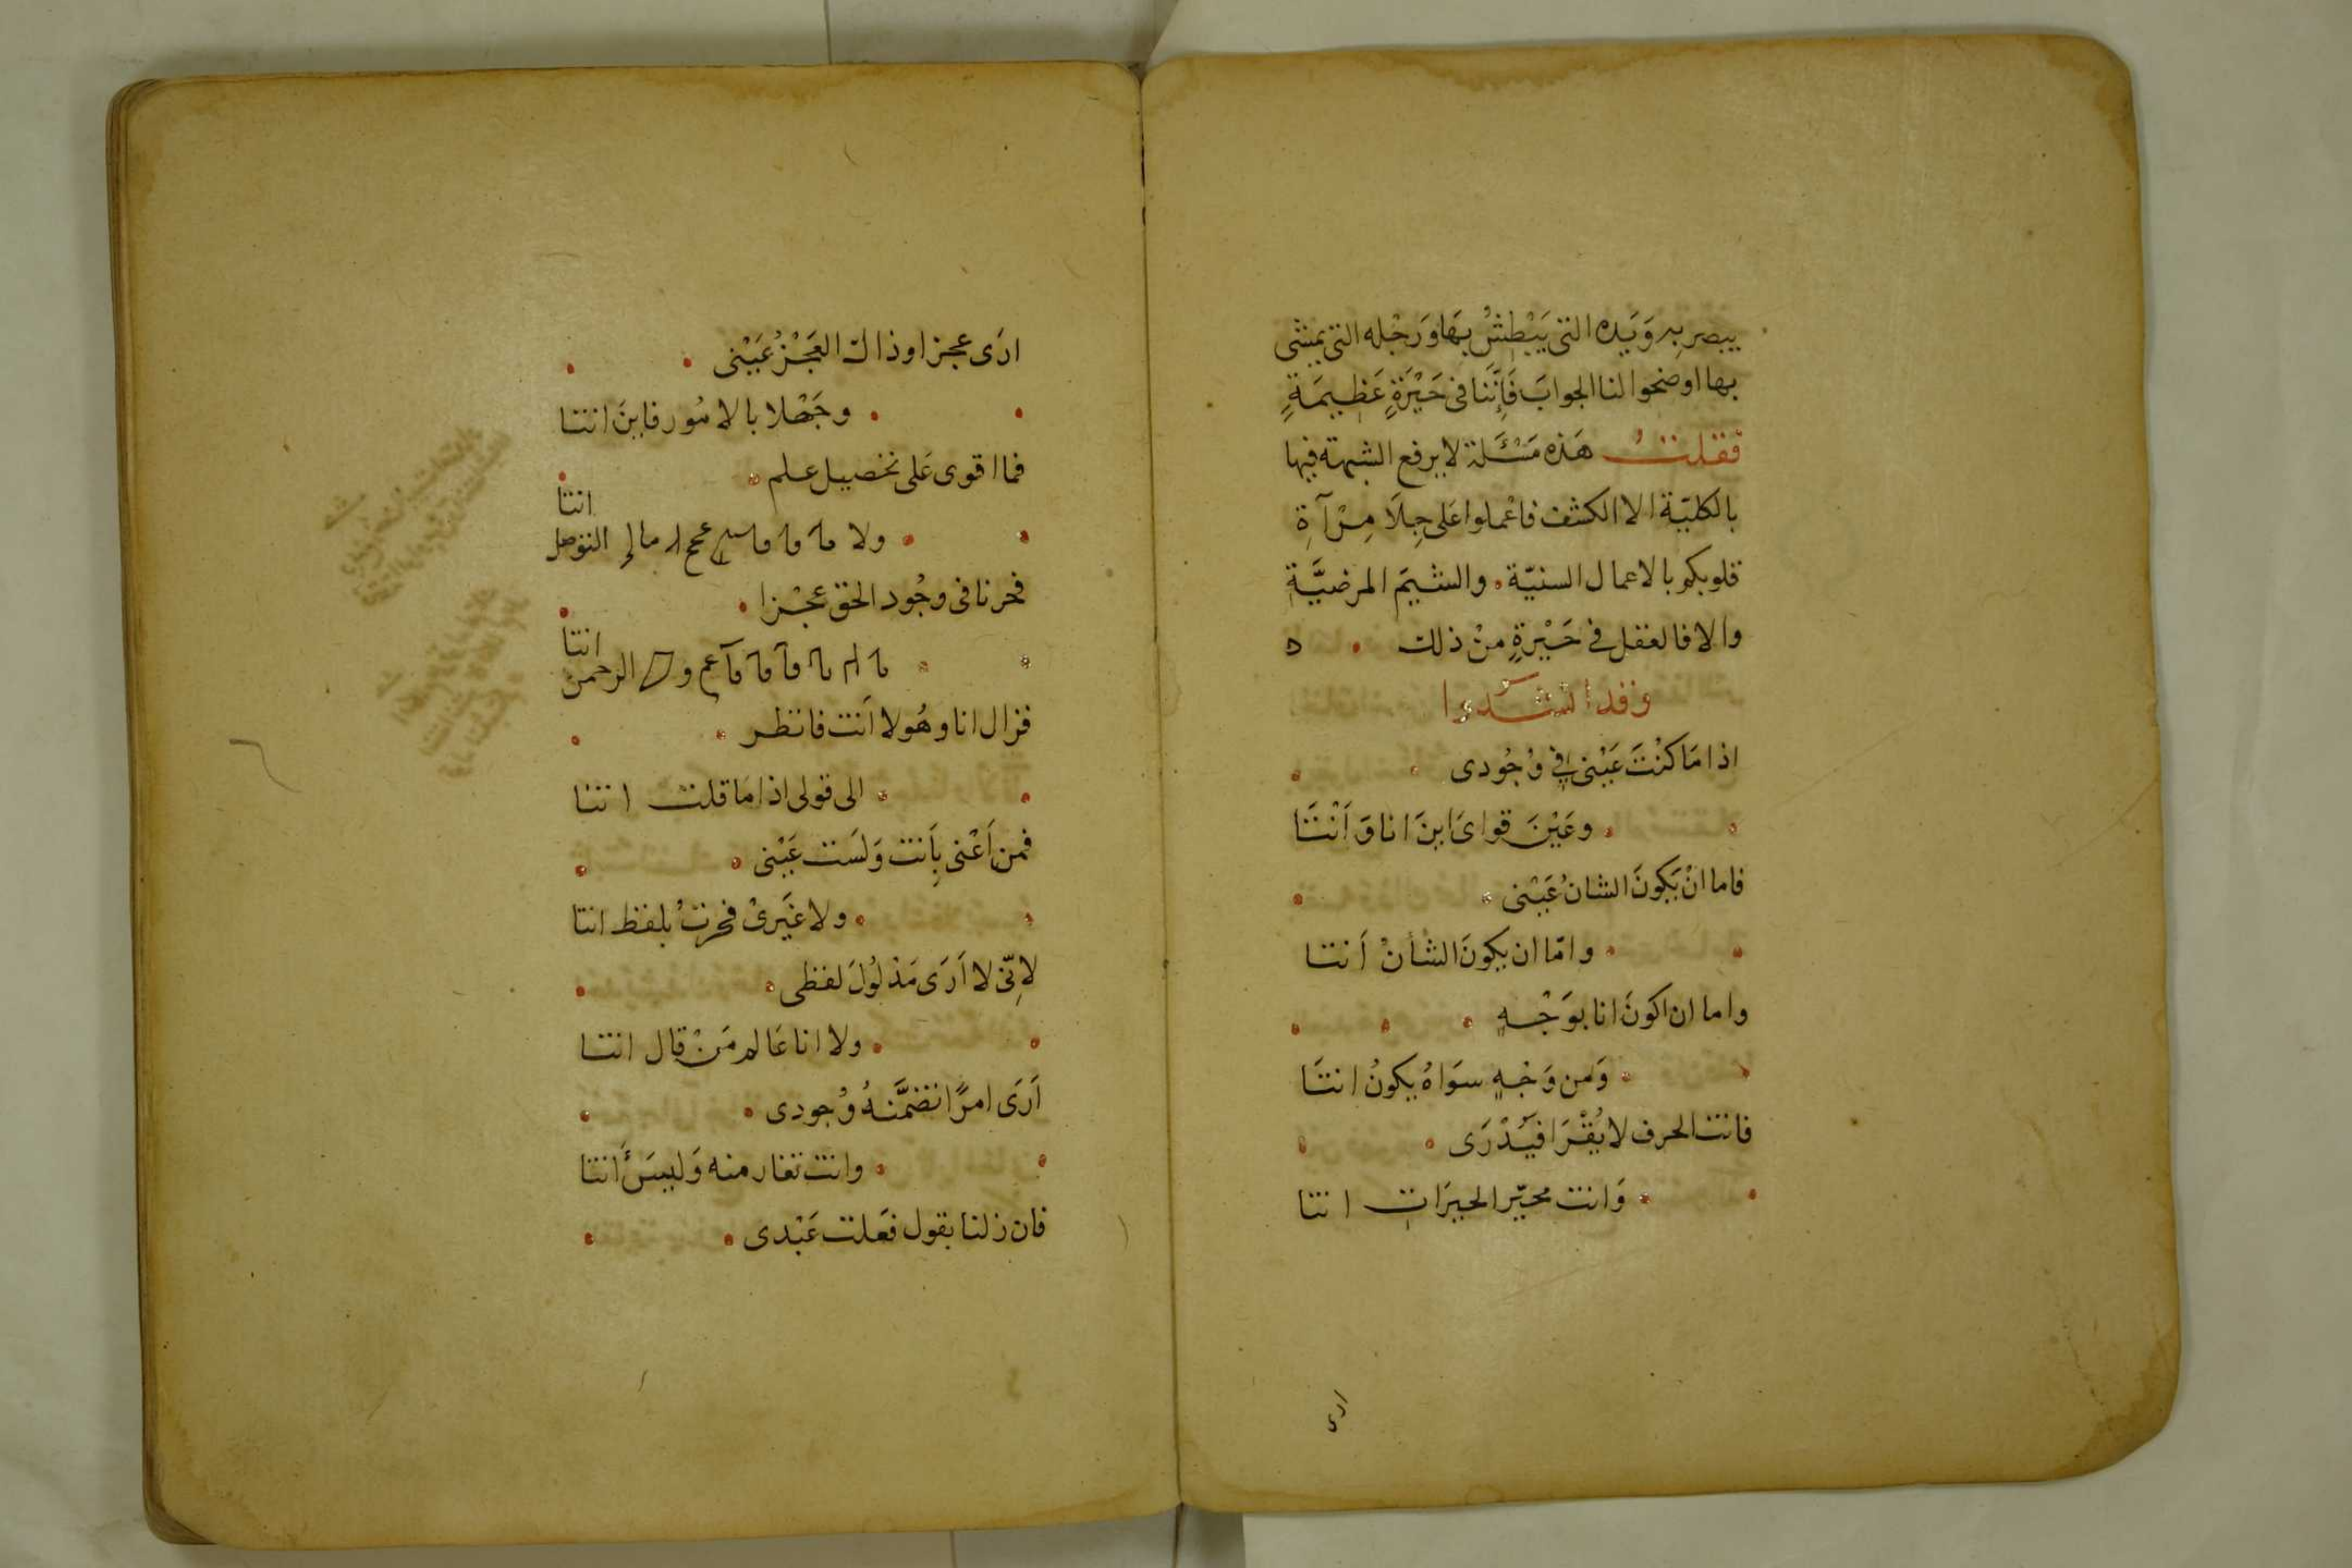 يبصر به وَيَده التى يَبْطِشُ بهَا وَرَجْله التى يمشى
بها اوضحوا لنا الجوابَ فَإِنَّنَا فى حَيْرَةٍ عَظِيمَةٍ
فقلتُ هَذه مَسْئَلة لا يرفع الشبهة فيها
بالكليّة الا الكشف فاعْملوا عَلى جِلَا مِرْآةِ
قلوبكم بالاعمال السنيّة والشيَم المرضيَّة
والا فالعقل فى حَيْرةٍ منْ ذلك ه
وقد انشدوا
اذا مَا كنْتَ عَيْنى فى وُجُودى
وعَيْنَ قواىَ اينَ انا وَ اَنْتَا
فاما انْ يَكونَ الشانُ عَيْنى
وامّا ان يكونَ الشأنْ اَنتا
واما ان اكونَ انا بوَجْهٍ
وَمن وَجْهٍ سوَاهُ يكونُ انتَا
فانت الحرف لا يُقْرَا فيُدْرَى
وَانت محيّر الحيرَاتِ انتا
ارى
ارَى عجزا وذاك العَجْزُ عَيْنى
وجَهْلا بالامُور فاينَ انتا
فما اقوى عَلى تحصيل علم
انتا
ولا
فحرنا فى وجُود الحق عجْزا
انتا
الرحمن
فزال انا وهُو لا اَنت فانظر
الى قولى اذا مَا قلت انتا
فمن اَعْنى بِاَنت وَلسَت عَيْنى
ولا غيَرىْ فحرتُ بلفظ انتا
لاِنّى لا اَرَى مَدْلُولَ لفظى
ولا انا عَالم مَنْ قال انتا
اَرَى امرًا تضمَّنهُ وُجودى
وانت تغار منه وَليسَ انتا
فان زلنا بقول فعَلت عَبْدى